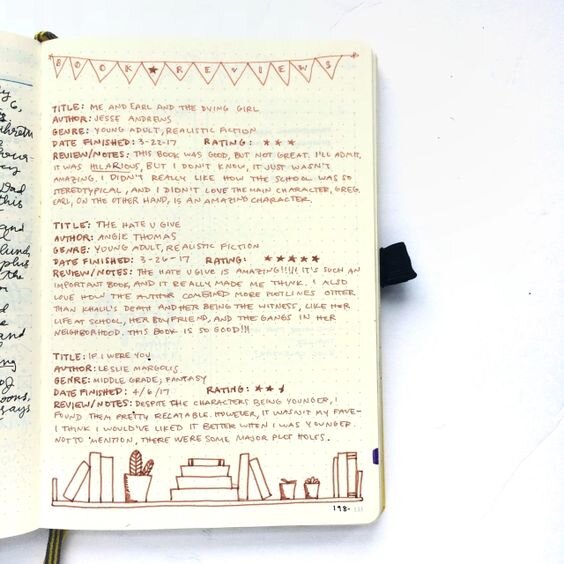 BOOK ★ REVIEWS
TITLE: ME AND EARL AND THE DYING GIRL
AUTHOR: JESSE ANDREWS
GENRE: YOUNG ADULT, REALISTIC FICTION
DATE FINISHED: 3-22-17 RATING: ★ ★ ★
REVIEW/NOTES: THIS BOOK WAS GOOD, BUT NOT GREAT. I'LL ADMIT,
IT WAS HILARIOUS, BUT I DON'T KNOW, IT JUST WASN'T
AMAZING. I DIDN'T REALLY LIKE HOW THE SCHOOL WAS SO
STEREOTYPICAL, AND I DIDN'T LOVE THE MAIN CHARACTER, GREG.
EARL, ON THE OTHER HAND, IS AN AMAZING CHARACTER.
TITLE: THE HATE U GIVE
AUTHOR: ANGIE THOMAS
GENRE: YOUNG ADULT, REALISTIC FICTION
DATE FINISHED: 3-26-17 RATING: ★ ★ ★ ★ ★
REVIEW/NOTES: THE HATE U GIVE IS AMAZING!!!!! IT'S SUCH AN
IMPORTANT BOOK, AND IT REALLY MADE ME THINK. I ALSO
LOVE HOW THE AUTHOR COMBINED MORE PLOTLINES OTHER
THAN KHALIL'S DEATH AND HER BEING THE WITNESS, LIKE HER
LIFE AT SCHOOL, HER BOYFRIEND, AND THE GANGS IN HER
NEIGHBORHOOD. THIS BOOK IS SO GOOD!!!
TITLE: IF I WERE YOU
AUTHOR: LESLIE MARGOLIS
GENRE: MIDDLE GRADE, FANTASY
DATE FINISHED: 4/6/17 RATING: ★ ★
REVIEW/NOTES: DESPITE THE CHARACTERS BEING YOUNGER, I
FOUND THEM PRETTY RELATABLE. HOWEVER, IT WASN'T MY FAVE-
I THINK I WOULD'VE LIKED IT BETTER WHEN I WAS YOUNGER.
NOT TO MENTION, THERE WERE SOME MAJOR PLOT HOLES.
198